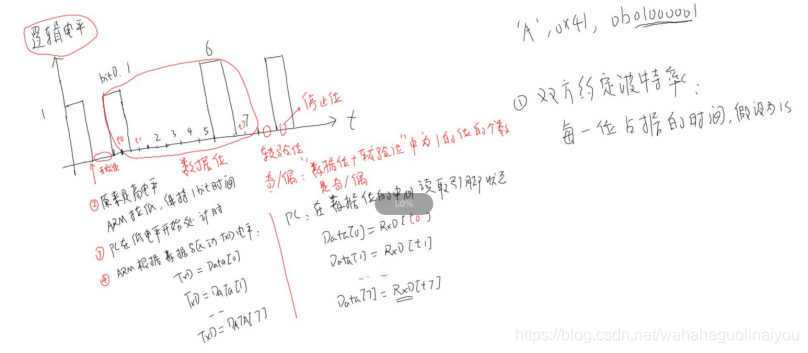 逻辑电平
1
bit0.1
6
t0 t1 2 3 4 5 t7 7
t
起始位
数据位
校验位
停止位
奇/偶："数据位+校验位"中为1的位的个数
是奇/偶
'A', 0x41, 0b01000001
① 双方约定波特率：
每一位占据的时间，假设为1s
② 原来是高电平
ARM拉低，保持1bit时间
③ PC在低电平开始处计时
④ ARM根据数据驱动TxD电平：
TxD = Data[0]
TxD = DATA[1]
TxD = DATA[7]
PC：在数据位的中间读取引脚状态
Data[0] = RxD[t0]
Data[1] = RxD[t1]
Data[7] = RxD[t7]
https://blog.csdn.net/wahahaguolinaiyou